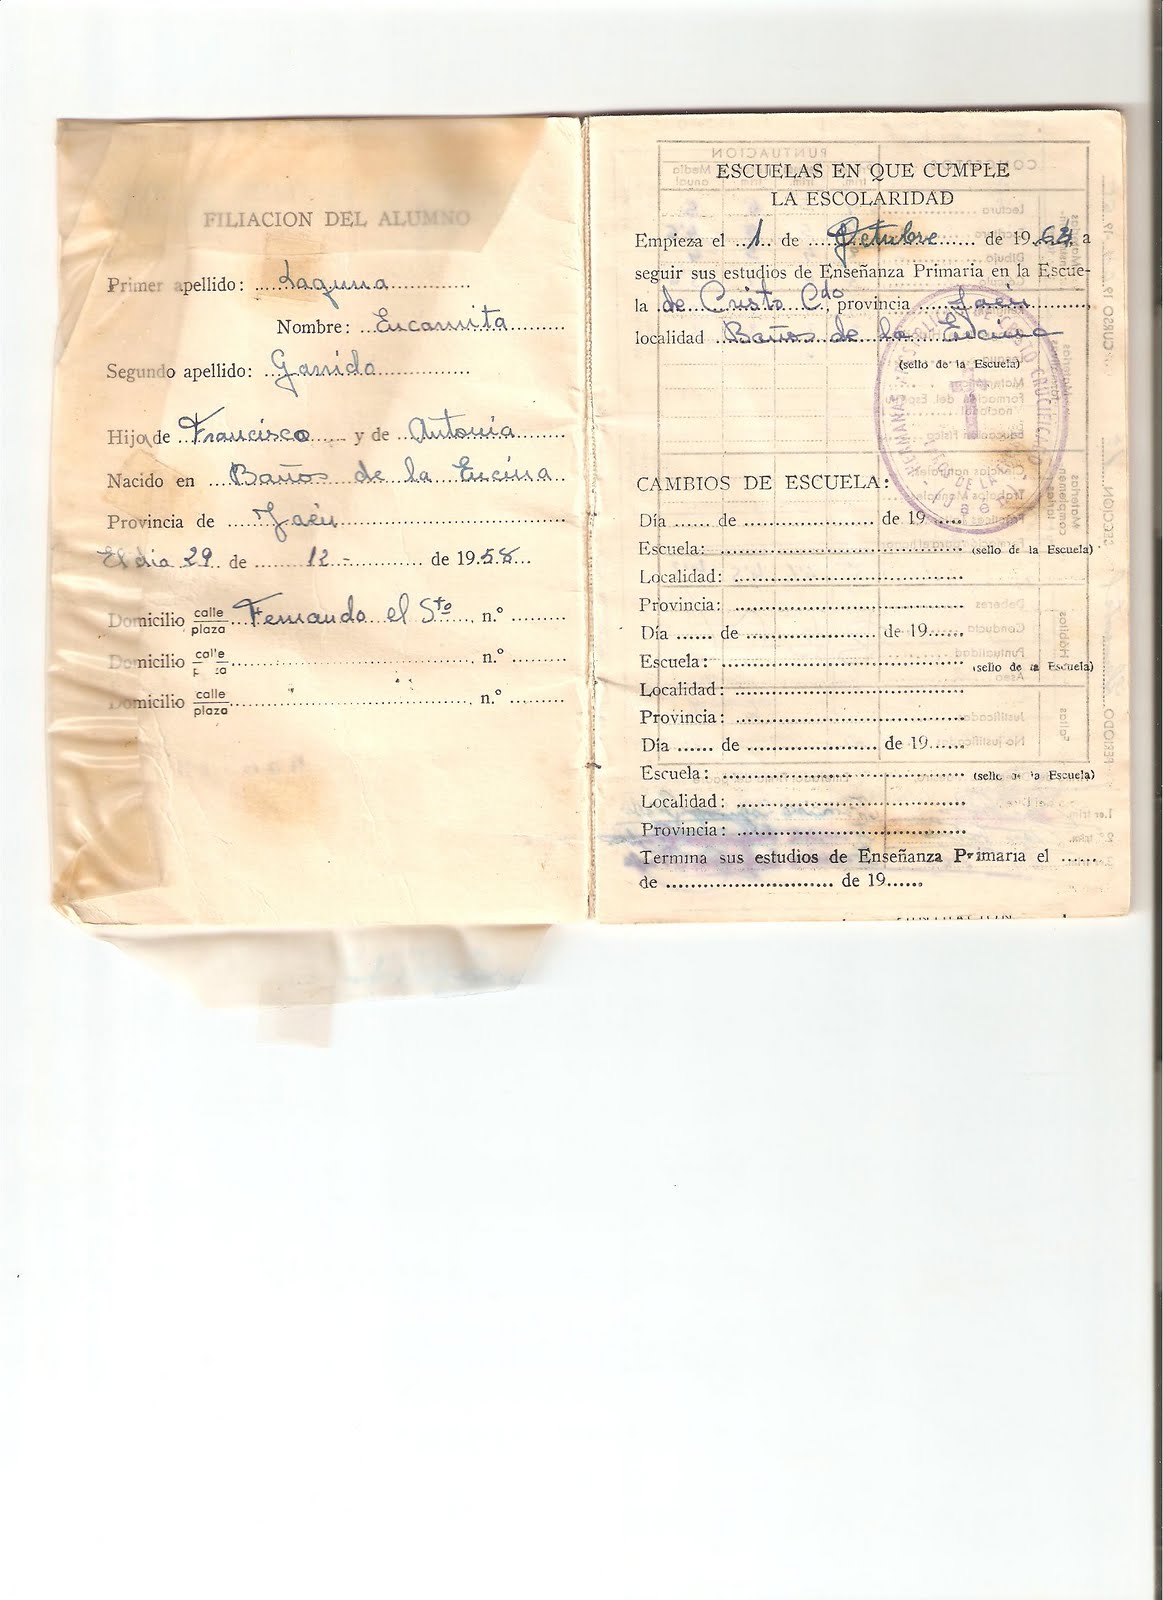 FILIACION DEL ALUMNO
Primer apellido: Laguna
Nombre: Encarnita
Segundo apellido: Garrido
Hija de Francisco y de Antonia
Nacido en Baños de la Encina
Provincia de Jaén
El dia 29 de 12 - de 1958
Domicilio calle plaza Fernando el Sto, n.º
Domicilio calle plaza, n.º
Domicilio calle plaza, n.º
ESCUELAS EN QUE CUMPLE
LA ESCOLARIDAD
Empieza el 1 de Octubre de 196 a
seguir sus estudios de Enseñanza Primaria en la Escue-
la de Cristo Cdo, provincia Jaén,
localidad Baños de la Encina
(sello de la Escuela)
HERMANAS CRUCIFICADO
DE LA
Jaén
CAMBIOS DE ESCUELA:
Día de de 19
Escuela: (sello de la Escuela)
Localidad:
Provincia:
Día de de 19
Escuela: (sello de la Escuela)
Localidad:
Provincia:
Día de de 19
Escuela: (sello de la Escuela)
Localidad:
Provincia:
Termina sus estudios de Enseñanza Primaria el
de de 19